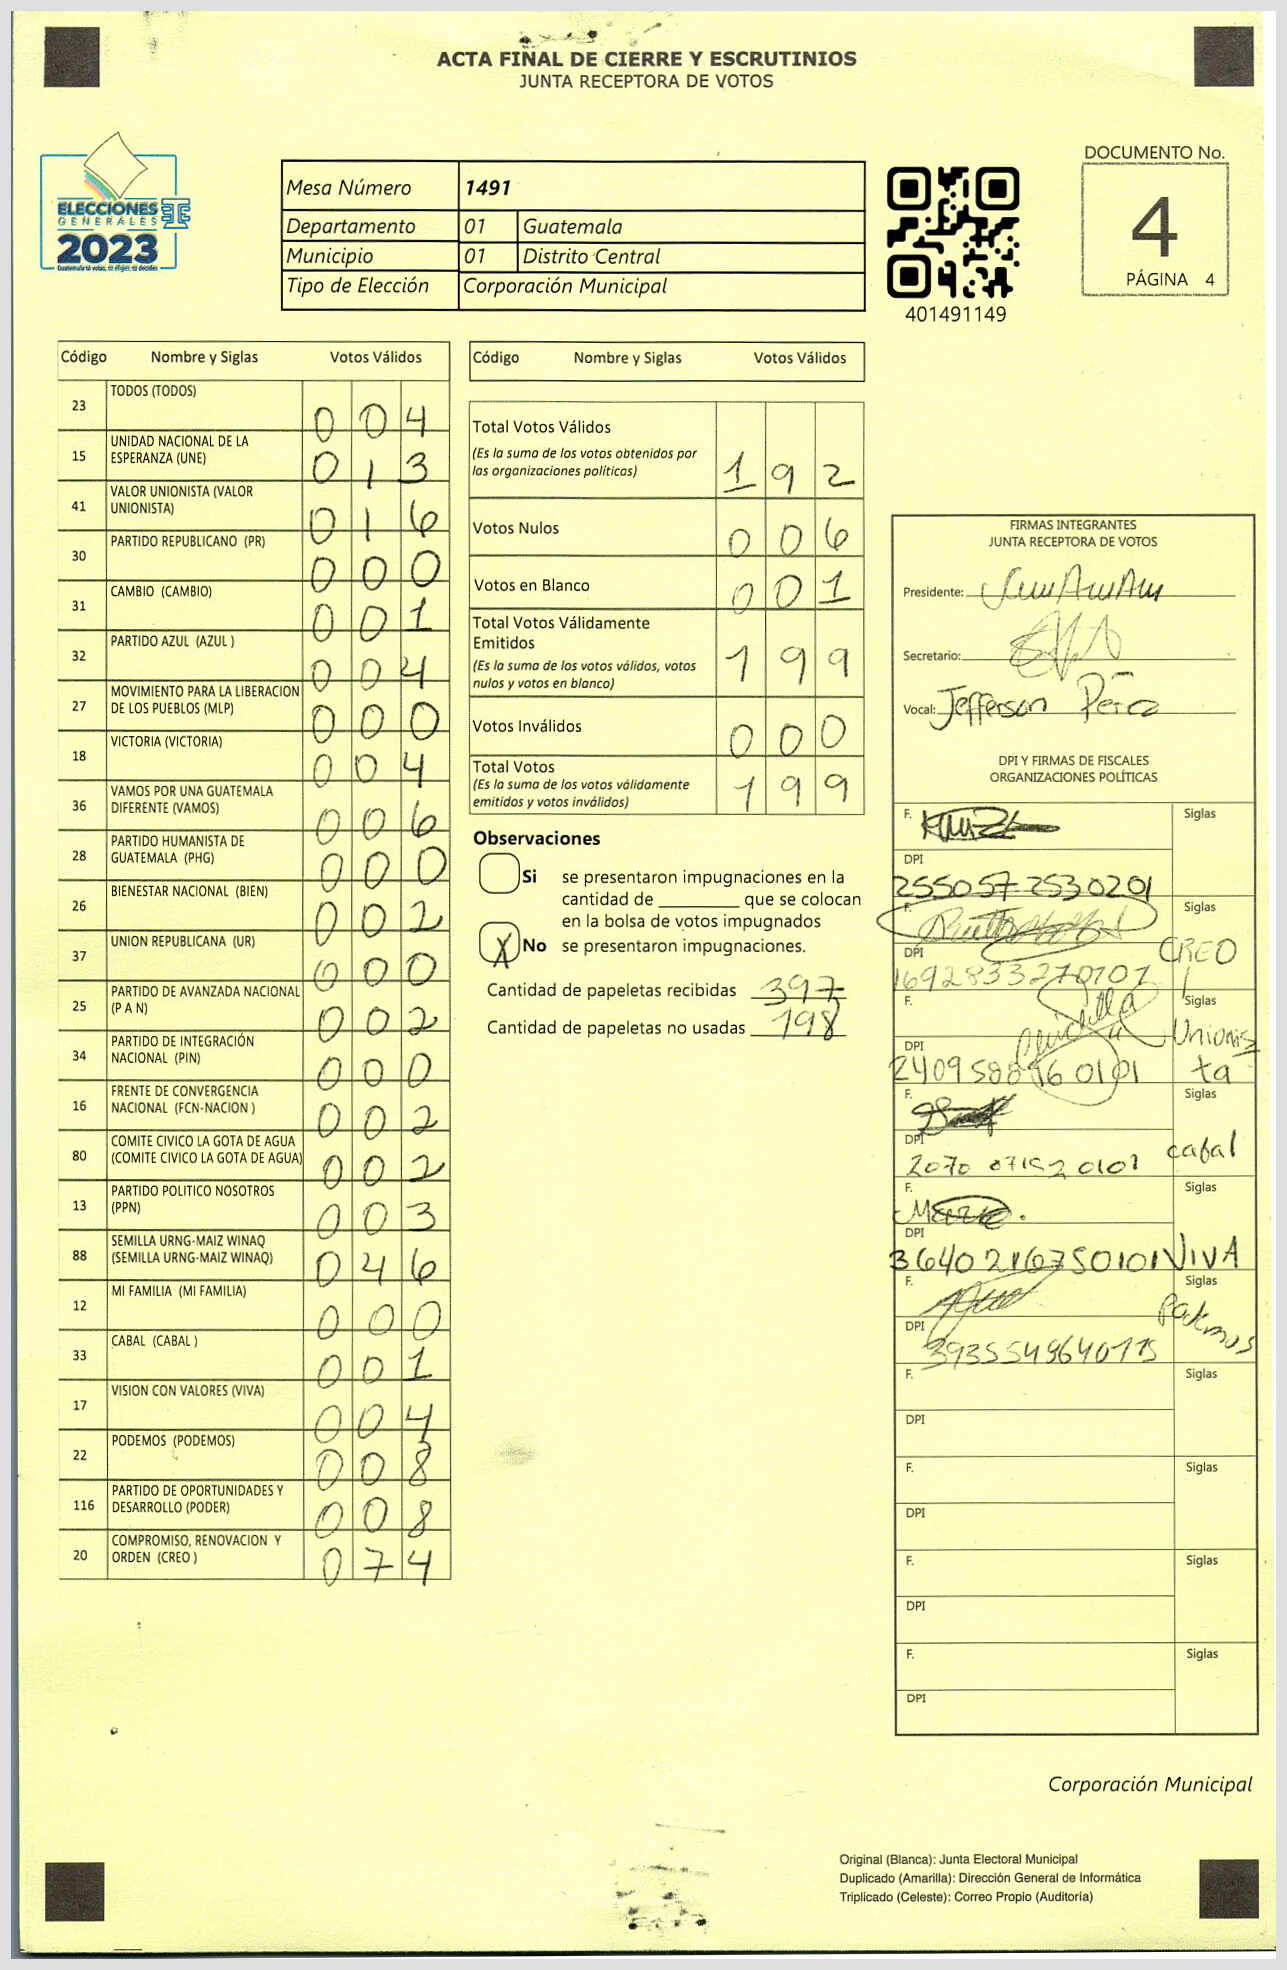 ACTA FINAL DE CIERRE Y ESCRUTINIOS
JUNTA RECEPTORA DE VOTOS
ELECCIONES
GENERALES
2023
Guatemala tú votas, tú eliges, tú decides
Mesa Número 1491
Departamento 01 Guatemala
Municipio 01 Distrito Central
Tipo de Elección Corporación Municipal
401491149
DOCUMENTO No.
4
PÁGINA 4
Código Nombre y Siglas Votos Válidos
23 TODOS (TODOS) 0 0 4
15 UNIDAD NACIONAL DE LA
ESPERANZA (UNE) 0 1 3
41 VALOR UNIONISTA (VALOR
UNIONISTA) 0 1 6
30 PARTIDO REPUBLICANO (PR) 0 0 0
31 CAMBIO (CAMBIO) 0 0 1
32 PARTIDO AZUL (AZUL ) 0 0 4
27 MOVIMIENTO PARA LA LIBERACION
DE LOS PUEBLOS (MLP) 0 0 0
18 VICTORIA (VICTORIA) 0 0 4
36 VAMOS POR UNA GUATEMALA
DIFERENTE (VAMOS) 0 0 6
28 PARTIDO HUMANISTA DE
GUATEMALA (PHG) 0 0 0
26 BIENESTAR NACIONAL (BIEN) 0 0 2
37 UNION REPUBLICANA (UR) 0 0 0
25 PARTIDO DE AVANZADA NACIONAL
(P A N) 0 0 2
34 PARTIDO DE INTEGRACIÓN
NACIONAL (PIN) 0 0 0
16 FRENTE DE CONVERGENCIA
NACIONAL (FCN-NACION ) 0 0 2
80 COMITE CIVICO LA GOTA DE AGUA
(COMITE CIVICO LA GOTA DE AGUA) 0 0 2
13 PARTIDO POLITICO NOSOTROS
(PPN) 0 0 3
88 SEMILLA URNG-MAIZ WINAQ
(SEMILLA URNG-MAIZ WINAQ) 0 4 6
12 MI FAMILIA (MI FAMILIA) 0 0 0
33 CABAL (CABAL ) 0 0 1
17 VISION CON VALORES (VIVA) 0 0 4
22 PODEMOS (PODEMOS) 0 0 8
116 PARTIDO DE OPORTUNIDADES Y
DESARROLLO (PODER) 0 0 8
20 COMPROMISO, RENOVACION Y
ORDEN (CREO ) 0 7 4
Código Nombre y Siglas Votos Válidos
Total Votos Válidos
(Es la suma de los votos obtenidos por
las organizaciones políticas) 1 9 2
Votos Nulos 0 0 6
Votos en Blanco 0 0 1
Total Votos Válidamente
Emitidos
(Es la suma de los votos válidos, votos
nulos y votos en blanco) 1 9 9
Votos Inválidos 0 0 0
Total Votos
(Es la suma de los votos válidamente
emitidos y votos inválidos) 1 9 9
Observaciones
Si se presentaron impugnaciones en la
cantidad de ________ que se colocan
en la bolsa de votos impugnados
X No se presentaron impugnaciones.
Cantidad de papeletas recibidas 397
Cantidad de papeletas no usadas 198
FIRMAS INTEGRANTES
JUNTA RECEPTORA DE VOTOS
Presidente:
Secretario:
Vocal: Jefferson Pérez
DPI Y FIRMAS DE FISCALES
ORGANIZACIONES POLÍTICAS
F. Siglas
DPI
2550572530201
F. Siglas
DPI CREO
1692833270101
F. Siglas
DPI Unionis
ta
F. Siglas
DPI cabal
F. Siglas
DPI
3640216750101 VIVA
F. Siglas
DPI
3935549640115
F. Siglas
DPI
F. Siglas
DPI
F. Siglas
DPI
F. Siglas
DPI
Corporación Municipal
Original (Blanca): Junta Electoral Municipal
Duplicado (Amarilla): Dirección General de Informática
Triplicado (Celeste): Correo Propio (Auditoría)